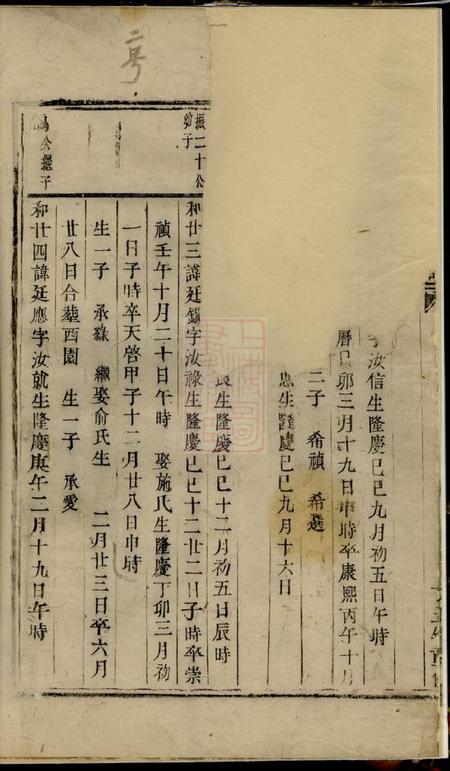 字汝信生隆慶己巳九月初五日午時
卯三月十九日申時卒康熙丙午十月
二子 希禎 希選
忠生隆慶己巳九月十六日
良生隆慶己巳十二月初五日辰時
振二十公
幼子
和廿三諱廷鎮字汝祿生隆慶己巳十二廿二日子時卒崇
禎壬午十月二十日午時 娶施氏生隆慶丁卯三月初
一日子時卒天啓甲子十二月廿八日申時
生一子 承祿 繼娶俞氏生 二月廿三日卒六月
廿八日合葬西園 生一子 承愛
公繼子
和廿四諱廷應字汝就生隆慶庚午二月十九日午時